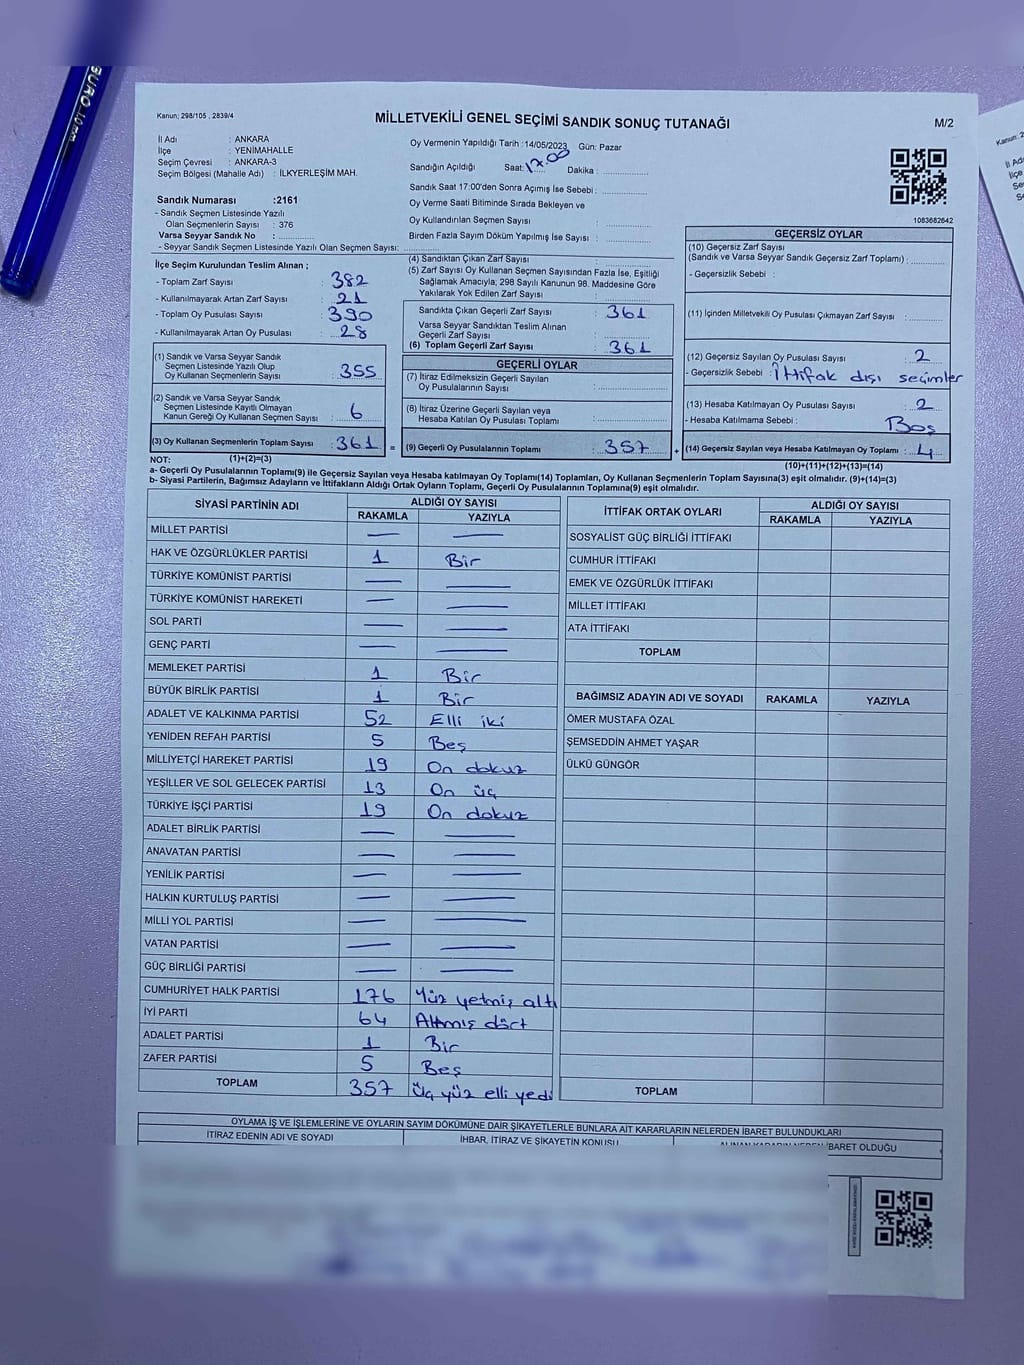 BURO 1.0mm
Kanun; 298/105 , 2839/4
MİLLETVEKİLİ GENEL SEÇİMİ SANDIK SONUÇ TUTANAĞI
M/2
İl Adı : ANKARA
İlçe : YENİMAHALLE
Seçim Çevresi : ANKARA-3
Seçim Bölgesi (Mahalle Adı) : İLKYERLEŞİM MAH.
Oy Vermenin Yapıldığı Tarih :14/05/2023 Gün: Pazar
Sandığın Açıldığı Saat: 17.00 Dakika :
Sandık Saat 17:00'den Sonra Açımış İse Sebebi :
Oy Verme Saati Bitiminde Sırada Bekleyen ve
Oy Kullandırılan Seçmen Sayısı :
Birden Fazla Sayım Döküm Yapılmış İse Sayısı :
1083682642
Sandık Numarası :2161
- Sandık Seçmen Listesinde Yazılı
Olan Seçmenlerin Sayısı : 376
Varsa Seyyar Sandık No :
- Seyyar Sandık Seçmen Listesinde Yazılı Olan Seçmen Sayısı:
İlçe Seçim Kurulundan Teslim Alınan ;
- Toplam Zarf Sayısı : 382
- Kullanılmayarak Artan Zarf Sayısı : 21
- Toplam Oy Pusulası Sayısı : 390
- Kullanılmayarak Artan Oy Pusulası : 28
(1) Sandık ve Varsa Seyyar Sandık
Seçmen Listesinde Yazılı Olup
Oy Kullanan Seçmenlerin Sayısı : 355
(2) Sandık ve Varsa Seyyar Sandık
Seçmen Listesinde Kayıtlı Olmayan
Kanun Gereği Oy Kullanan Seçmen Sayısı : 6
(3) Oy Kullanan Seçmenlerin Toplam Sayısı : 361 =
(4) Sandıktan Çıkan Zarf Sayısı :
(5) Zarf Sayısı Oy Kullanan Seçmen Sayısından Fazla İse, Eşitliği
Sağlamak Amacıyla, 298 Sayılı Kanunun 98. Maddesine Göre
Yakılarak Yok Edilen Zarf Sayısı :
Sandıkta Çıkan Geçerli Zarf Sayısı : 361
Varsa Seyyar Sandıktan Teslim Alınan
Geçerli Zarf Sayısı :
(6) Toplam Geçerli Zarf Sayısı : 361
GEÇERLİ OYLAR
(7) İtiraz Edilmeksizin Geçerli Sayılan
Oy Pusulalarının Sayısı :
(8) İtiraz Üzerine Geçerli Sayılan veya
Hesaba Katılan Oy Pusulaları Toplamı :
(9) Geçerli Oy Pusulalarının Toplamı : 357 +
GEÇERSİZ OYLAR
(10) Geçersiz Zarf Sayısı
(Sandık ve Varsa Seyyar Sandık Geçersiz Zarf Toplamı) :
- Geçersizlik Sebebi :
(11) İçinden Milletvekili Oy Pusulası Çıkmayan Zarf Sayısı :
(12) Geçersiz Sayılan Oy Pusulası Sayısı : 2
- Geçersizlik Sebebi : İttifak dışı seçimler
(13) Hesaba Katılmayan Oy Pusulası Sayısı : 2
- Hesaba Katılmama Sebebi : Boş
(14) Geçersiz Sayılan veya Hesaba Katılmayan Oy Pusulası Toplamı : 4
NOT: (1)+(2)=(3)
(10)+(11)+(12)+(13)=(14)
a- Geçerli Oy Pusulalarının Toplamı(9) ile Geçersiz Sayılan veya Hesaba katılmayan Oy Toplamı(14) Toplamları, Oy Kullanan Seçmenlerin Toplam Sayısına(3) eşit olmalıdır. (9)+(14)=(3)
b- Siyasi Partilerin, Bağımsız Adayların ve İttifakların Aldığı Ortak Oyların Toplamı, Geçerli Oy Pusulalarının Toplamına(9) eşit olmalıdır.
SİYASİ PARTİNİN ADI ALDIĞI OY SAYISI
RAKAMLA YAZIYLA
MİLLET PARTİSİ — —
HAK VE ÖZGÜRLÜKLER PARTİSİ 1 Bir
TÜRKİYE KOMÜNİST PARTİSİ — —
TÜRKİYE KOMÜNİST HAREKETİ — —
SOL PARTİ — —
GENÇ PARTİ — —
MEMLEKET PARTİSİ 1 Bir
BÜYÜK BİRLİK PARTİSİ 1 Bir
ADALET VE KALKINMA PARTİSİ 52 Elli iki
YENİDEN REFAH PARTİSİ 5 Beş
MİLLİYETÇİ HAREKET PARTİSİ 19 On dokuz
YEŞİLLER VE SOL GELECEK PARTİSİ 13 On üç
TÜRKİYE İŞÇİ PARTİSİ 19 On dokuz
ADALET BİRLİK PARTİSİ — —
ANAVATAN PARTİSİ — —
YENİLİK PARTİSİ — —
HALKIN KURTULUŞ PARTİSİ — —
MİLLİ YOL PARTİSİ — —
VATAN PARTİSİ — —
GÜÇ BİRLİĞİ PARTİSİ — —
CUMHURİYET HALK PARTİSİ 176 Yüz yetmiş altı
İYİ PARTİ 64 Altmış dört
ADALET PARTİSİ 1 Bir
ZAFER PARTİSİ 5 Beş
TOPLAM 357 Üç yüz elli yedi
İTTİFAK ORTAK OYLARI ALDIĞI OY SAYISI
RAKAMLA YAZIYLA
SOSYALİST GÜÇ BİRLİĞİ İTTİFAKI
CUMHUR İTTİFAKI
EMEK VE ÖZGÜRLÜK İTTİFAKI
MİLLET İTTİFAKI
ATA İTTİFAKI
TOPLAM
BAĞIMSIZ ADAYIN ADI VE SOYADI RAKAMLA YAZIYLA
ÖMER MUSTAFA ÖZAL
ŞEMSEDDİN AHMET YAŞAR
ÜLKÜ GÜNGÖR
TOPLAM
OYLAMA İŞ VE İŞLEMLERİNE VE OYLARIN SAYIM DÖKÜMÜNE DAİR ŞİKAYETLERLE BUNLARA AİT KARARLARIN NELERDEN İBARET BULUNDUKLARI
İTİRAZ EDENİN ADI VE SOYADI İHBAR, İTİRAZ VE ŞİKAYETİN KONUSU ALINAN KARARIN NEDEN İBARET OLDUĞU